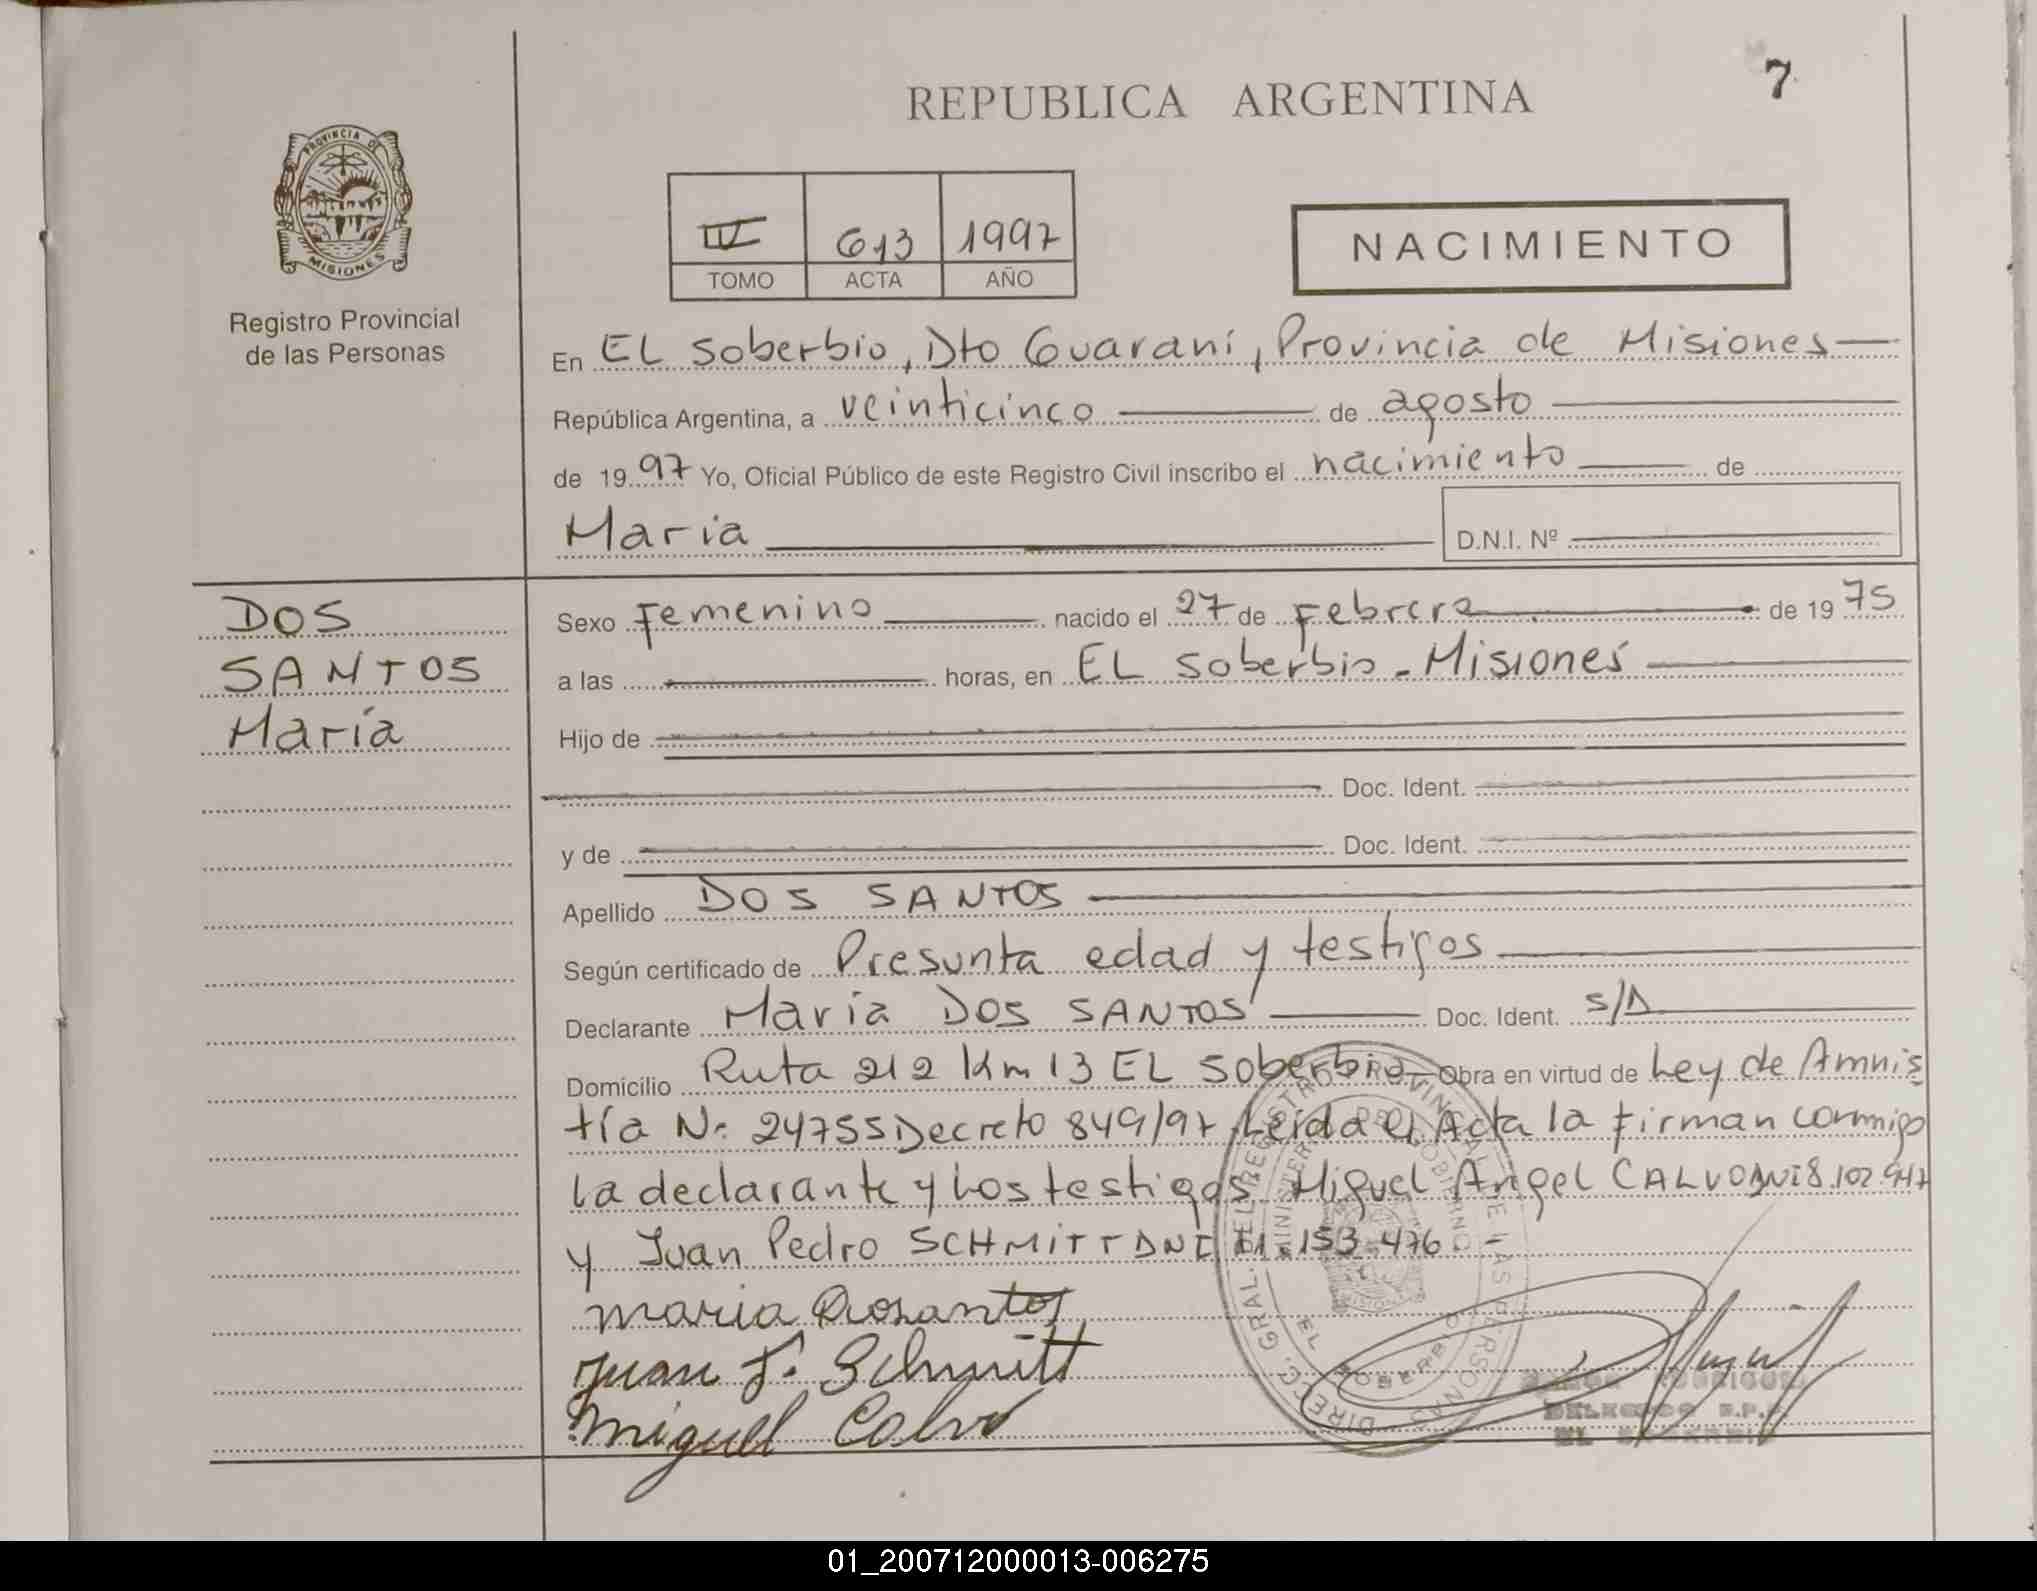 7
REPUBLICA ARGENTINA
PROVINCIA DE
MISIONES
Registro Provincial
de las Personas
IV 613 1997
TOMO ACTA AÑO
NACIMIENTO
En EL Soberbio, Dto Guaraní, Provincia de Misiones
República Argentina, a veinticinco de agosto
de 1997 Yo, Oficial Público de este Registro Civil inscribo el nacimiento de
Maria
D.N.I. Nº
DOS
SANTOS
María
Sexo Femenino nacido el 27 de Febrero de 1975
a las horas, en EL Soberbio - Misiones
Hijo de
Doc. Ident.
y de Doc. Ident.
Apellido DOS SANTOS
Según certificado de Presunta edad y testigos
Declarante María DOS SANTOS Doc. Ident. S/D
Domicilio Ruta 212 Km 13 EL Soberbio Obra en virtud de Ley de Amnis
tía Nº 24755 Decreto 849/97 Leída el Acta la firman conmigo
la declarante y los testigos Miguel Angel CALVO DNI 8.102.947
y Juan Pedro SCHMITT DNI 11.153.476 -
maria Dosantos
Juan P. Schmitt
Miguel Calvo
DIRECC. GRAL. DEL REGISTRO PROVINCIAL DE LAS PERSONAS
MINISTERIO DE GOBIERNO
EL SOBERBIO
EL SOBERBIO
01_200712000013-006275